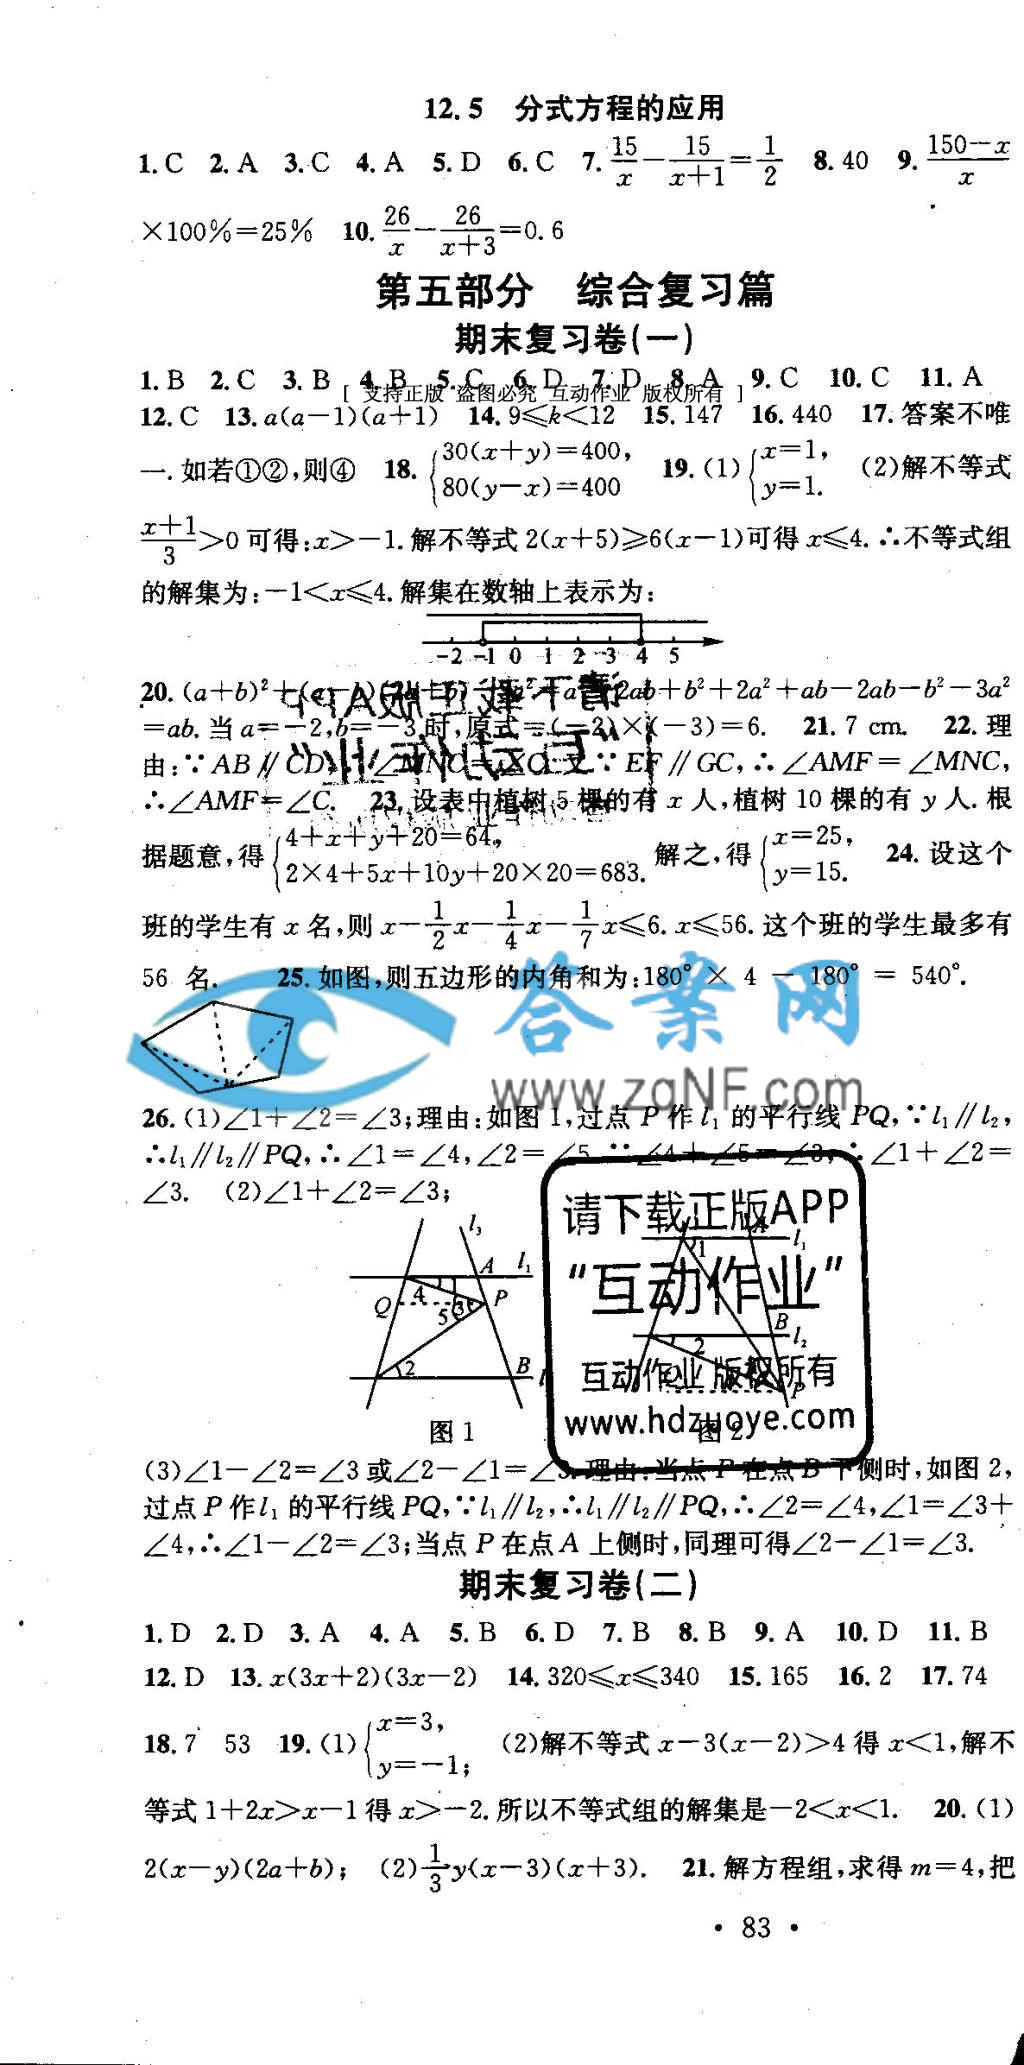 12.5 分式方程的应用
1.C 2.A 3.C 4.A 5.D 6.C 7. 15/x − 15/(x+1) = 1/2 8.40 9. (150−x)/x
×100%=25% 10. 26/x − 26/(x+3) =0.6
第五部分 综合复习篇
期末复习卷(一)
1.B 2.C 3.B 4.B 5.C 6.D 7.D 8.A 9.C 10.C 11.A
[ 支持正版 盗图必究 互动作业 版权所有 ]
12.C 13.a(a−1)(a+1) 14.9≤k<12 15.147 16.440 17.答案不唯
一.如若①②,则④ 18. {30(x+y)=400, 80(y−x)=400 19.(1) {x=1, y=1. (2)解不等式
(x+1)/3 >0可得:x>−1.解不等式2(x+5)≥6(x−1)可得x≤4.∴不等式组
的解集为:−1<x≤4.解集在数轴上表示为:
−2 −1 0 1 2 3 4 5
20.(a+b)²+ 2ab+b²+2a²+ab−2ab−b²−3a²
=ab.当a=−2,b=−3时,原式=(−2)×(−3)=6. 21.7 cm. 22.理
由:∵AB∥CD,∴∠MNC=∠C.又∵EF∥GC,∴∠AMF=∠MNC,
∴∠AMF=∠C. 23.设表中植树5棵的有x人,植树10棵的有y人.根
据题意,得 {4+x+y+20=64, 2×4+5x+10y+20×20=683. 解之,得 {x=25, y=15. 24.设这个
班的学生有x名,则x−1/2x−1/4x−1/7x≤6.x≤56.这个班的学生最多有
56名. 25.如图,则五边形的内角和为:180°×4−180°=540°.
答案网
www.zqNF.com
26.(1)∠1+∠2=∠3;理由:如图1,过点P作l₁的平行线PQ,∵l₁∥l₂,
∴l₁∥l₂∥PQ,∴∠1=∠4,∠2=∠5.∵∠4+∠5=∠3,∴∠1+∠2=
∠3. (2)∠1+∠2=∠3;
l₃ A l₁ Q 4 5 3 P 2 B
图1
A l₁ 1 B l₂ 2 Q P
图2
请下载正版APP
“互动作业”
互动作业 版权所有
www.hdzuoye.com
(3)∠1−∠2=∠3或∠2−∠1=∠3.理由:当点P在点B下侧时,如图2,
过点P作l₁的平行线PQ,∵l₁∥l₂,∴l₁∥l₂∥PQ,∴∠2=∠4,∠1=∠3+
∠4,∴∠1−∠2=∠3;当点P在点A上侧时,同理可得∠2−∠1=∠3.
期末复习卷(二)
1.D 2.D 3.A 4.A 5.B 6.D 7.B 8.B 9.A 10.D 11.B
12.D 13.x(3x+2)(3x−2) 14.320≤x≤340 15.165 16.2 17.74
18.7 53 19.(1) {x=3, y=−1; (2)解不等式x−3(x−2)>4得x<1,解不
等式1+2x>x−1得x>−2.所以不等式组的解集是−2<x<1. 20.(1)
2(x−y)(2a+b); (2) 1/3 y(x−3)(x+3). 21.解方程组,求得m=4,把
• 83 •